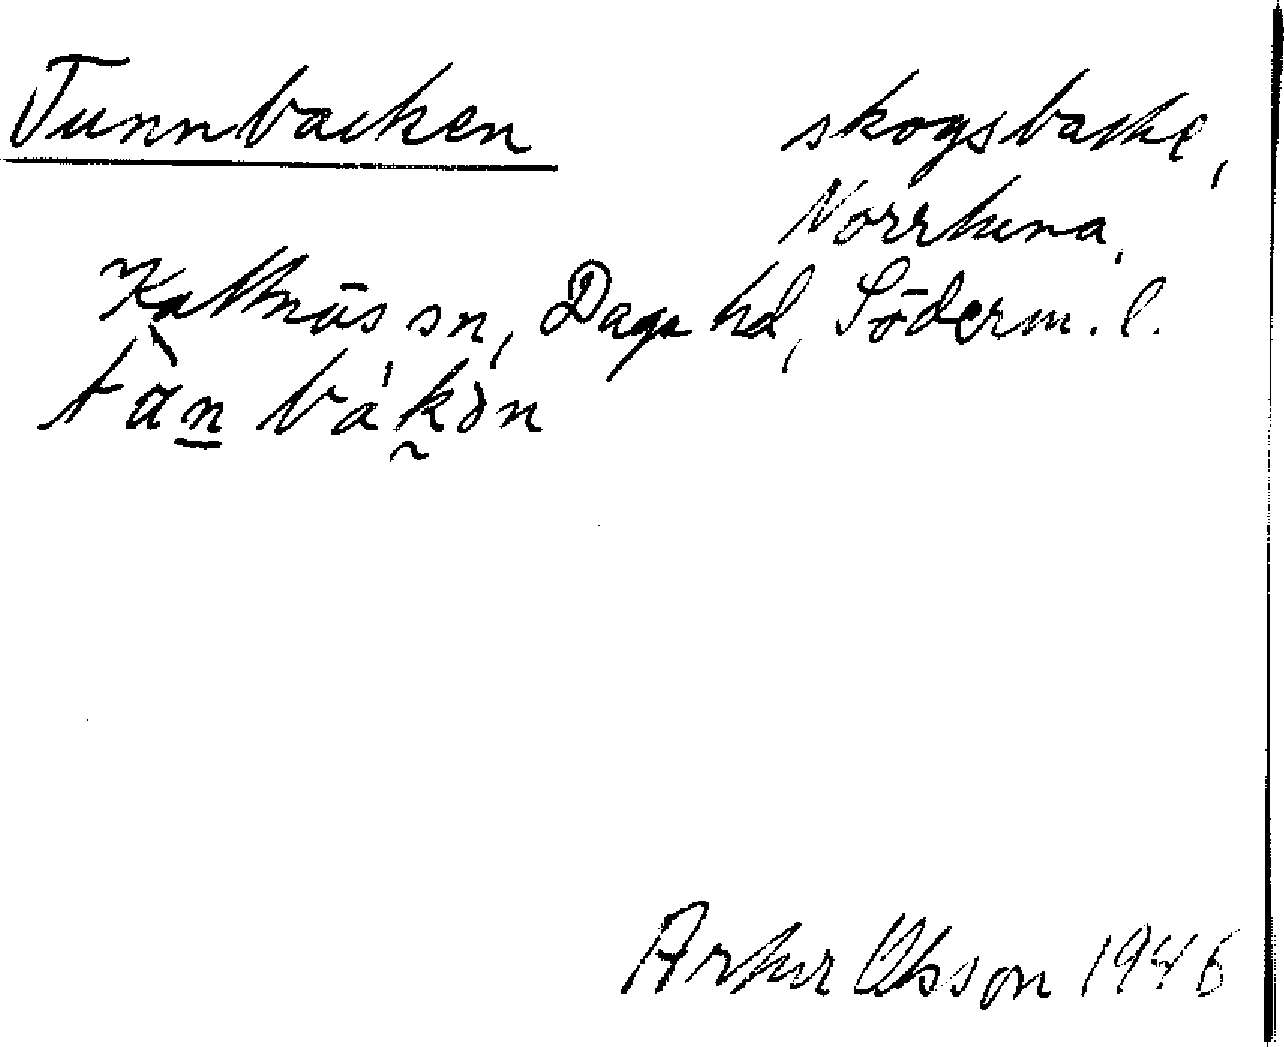 Tunnbacken skogsbacke,
Norrhena,
Kattnäs sn, Daga hd, Söderm. l.
tan bákən
Arthur Olsson 1946